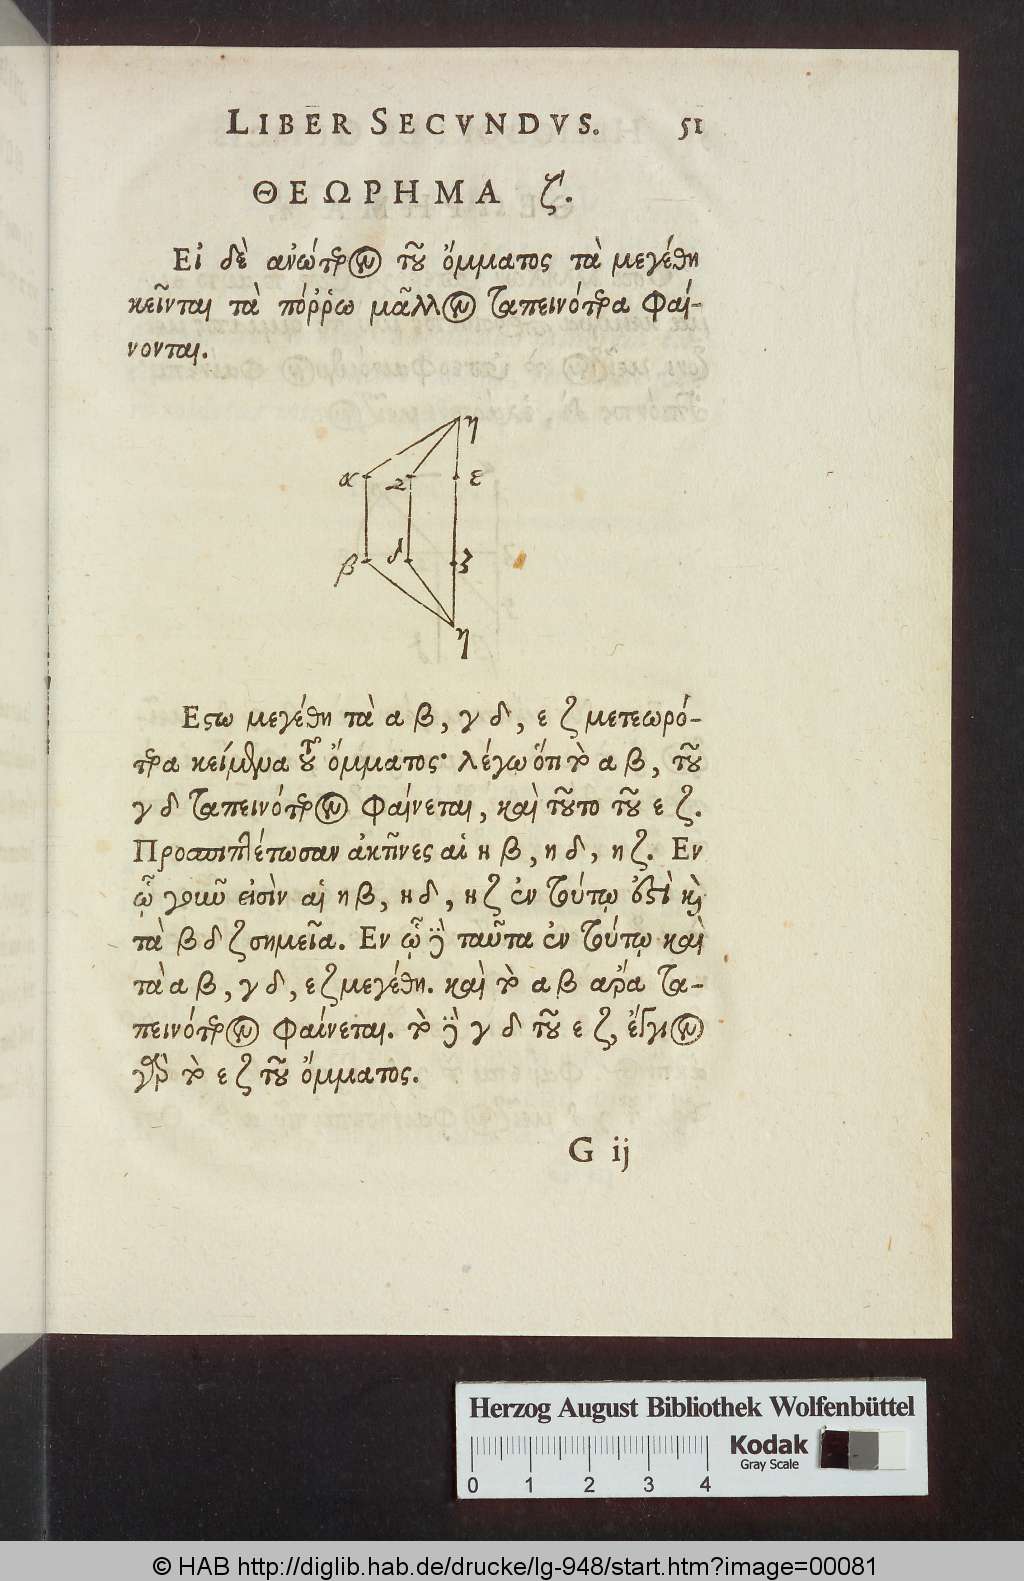 LIBER SECVNDVS. 51
ΘΕΩΡΗΜΑ ζ'.
Εἰ δὲ ἀνώτερον τοῦ ὄμματος τὰ μεγέθη
κεῖνται τὰ πόῤῥω μᾶλλον ταπεινότερα φαί-
νονται.
η
α γ ε
β δ ζ
η
Εστω μεγέθη τὰ α β, γ δ, ε ζ μετεωρό-
τερα κείμθμα τοῦ ὄμματος· λέγω ὅτι τὸ α β, τοῦ
γ δ ταπεινότερον φαίνεται, καὶ τοῦτο τοῦ ε ζ.
Προσπιπλέτωσαν ἀκτῖνες αἱ η β, η δ, η ζ. Εν
ᾧ εἰσὶν αἱ η β, η δ, η ζ ἐν τύπῳ ἐστὶ καὶ
τὰ β δ ζ σημεῖα. Εν ᾧ δὲ ταῦτα ἐν τύπῳ καὶ
τὰ α β, γ δ, ε ζ μεγέθη. καὶ τὸ α β ἄρα τα-
πεινότερον φαίνεται. τὸ δὲ γ δ τοῦ ε ζ, ἔγγιον
γὰρ τὸ ε ζ τοῦ ὄμματος.
G ij
Herzog August Bibliothek Wolfenbüttel
Kodak
Gray Scale
0 1 2 3 4
© HAB http://diglib.hab.de/drucke/lg-948/start.htm?image=00081